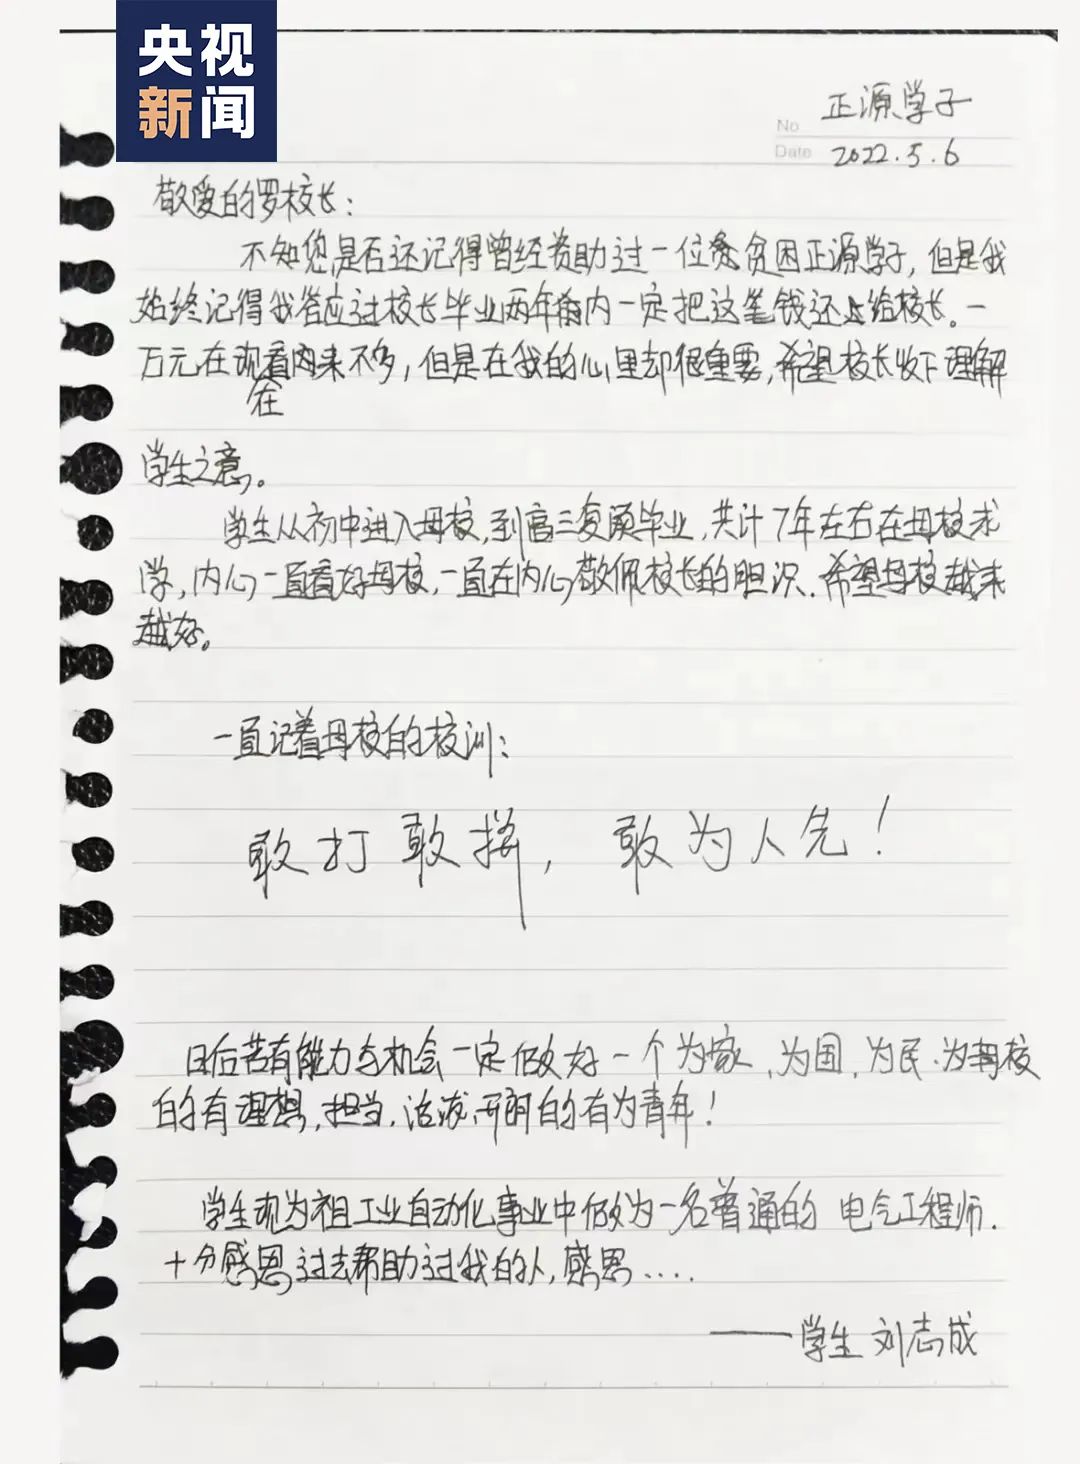 央视
新闻
No 正源学子
Date 2022.5.6
敬爱的罗校长:
不知您是否还记得曾经资助过一位贫困正源学子,但是我
始终记得我答应过校长毕业两年内一定把这笔钱还给校长。一
万元在现在看来不多,但是在我的心里却很重要,希望校长收下理解
学生之意。
学生从初中进入母校,到高三复读毕业,共计7年左右在母校求
学,内心一直看好母校,一直在内心敬佩校长的胆识.希望母校越来
越好。
一直记着母校的校训:
敢打敢拼,敢为人先!
日后若有能力与机会一定做好一个为家、为国、为民.为母校
的有理想,担当,活泼,开朗的有为青年!
学生现为祖工业自动化事业中做为一名普通的 电气工程师.
十分感恩过去帮助过我的人,感恩....
——学生 刘志成